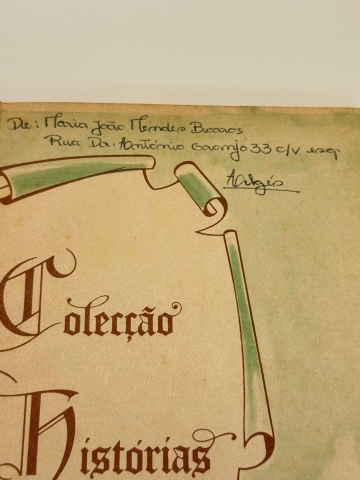 De: Maria João Mendes Barros
Rua Dr. António Granjo 33 c/v esq.
Algés
Colecção
Histórias